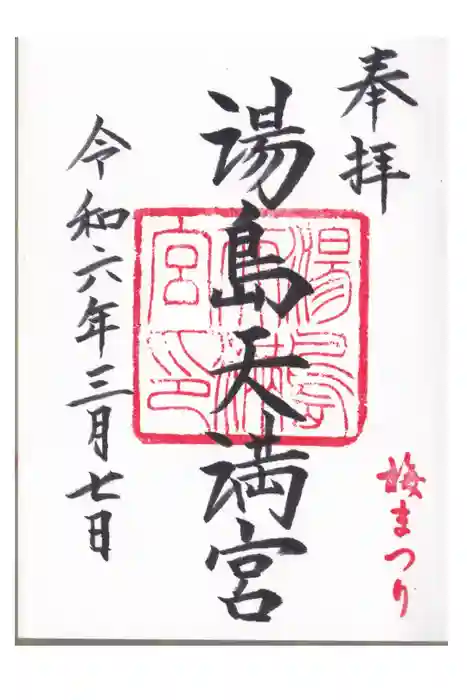 奉拝
湯島天満宮
湯島天満宮印
令和六年三月七日
梅まつり